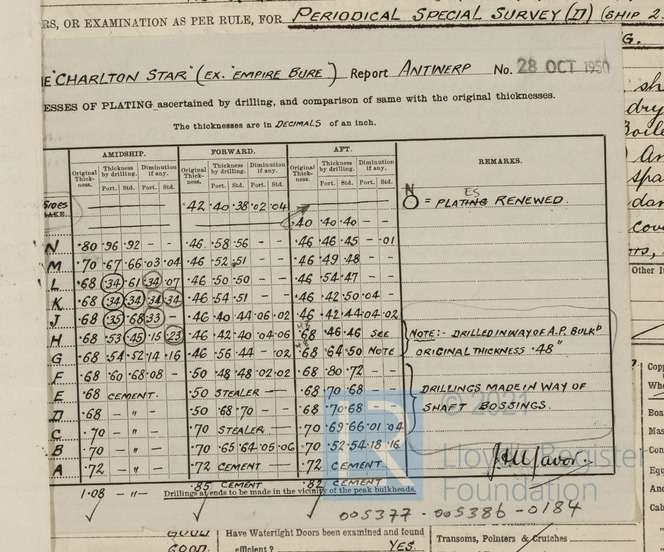 RS, OR EXAMINATION AS PER RULE, FOR PERIODICAL SPECIAL SURVEY (D) (SHIP 2
"CHARLTON STAR" (EX. "EMPIRE BURE") Report ANTWERP No. 28 OCT 1950
ESSES OF PLATING ascertained by drilling, and comparison of same with the original thicknesses.
The thicknesses are in DECIMALS of an inch.
AMIDSHIP. FORWARD. AFT. REMARKS.
Original Thickness. Thickness by drilling. Diminution if any. Original Thickness. Thickness by drilling. Diminution if any. Original Thickness. Thickness by drilling. Diminution if any.
Port. Std. Port. Std. Port. Std. Port. Std. Port. Std. Port. Std.
.42 .40 .38 .02 .04
O = PLATING RENEWED.
.40 .40 .40 - -
N .80 .96 .92 - - .46 .58 .56 - - .46 .46 .45 - .01
M .70 .67 .66 .03 .04 .46 .52 .51 - - .46 .49 .48 - -
L .68 .34 .61 .34 .07 .46 .50 .50 - - .46 .54 .47 - -
K .68 .34 .34 .34 .34 .46 .54 .51 - - .46 .42 .50 .04 -
J .68 .35 .68 .33 - .46 .40 .44 .06 .02 .46 .42 .44 .04 .02
H .68 .53 .45 .15 .23 .46 .42 .40 .04 .06 .68 .46 .46 SEE NOTE:- DRILLED IN WAY OF A.P. BULKD
G .68 .54 .52 .14 .16 .46 .56 .44 - .02 .68 .64 .50 NOTE ORIGINAL THICKNESS .48"
F .68 .60 .68 .08 - .50 .48 .48 .02 .02 .68 .80 .72 - -
E .68 CEMENT. .50 STEALER .68 .70 .68 - - DRILLINGS MADE IN WAY OF
D .68 - " - .50 .68 .70 - - .68 .70 .68 - - SHAFT BOSSINGS.
C .70 - " - .70 STEALER .70 .69 .66 .01 .04
B .70 - " - .70 .65 .64 .05 .06 .70 .52 .54 .18 .16
A .72 - " - .72 CEMENT .72 CEMENT
1.08 - " - .85 CEMENT .82 CEMENT
Drillings at ends to be made in the vicinity of the peak bulkheads.
© 2021
Lloyd's Register
Foundation
005377-005386-0184
GOOD
GOOD.
Have Watertight Doors been examined and found
efficient? YES
Transoms, Pointers & Crutches
Other It